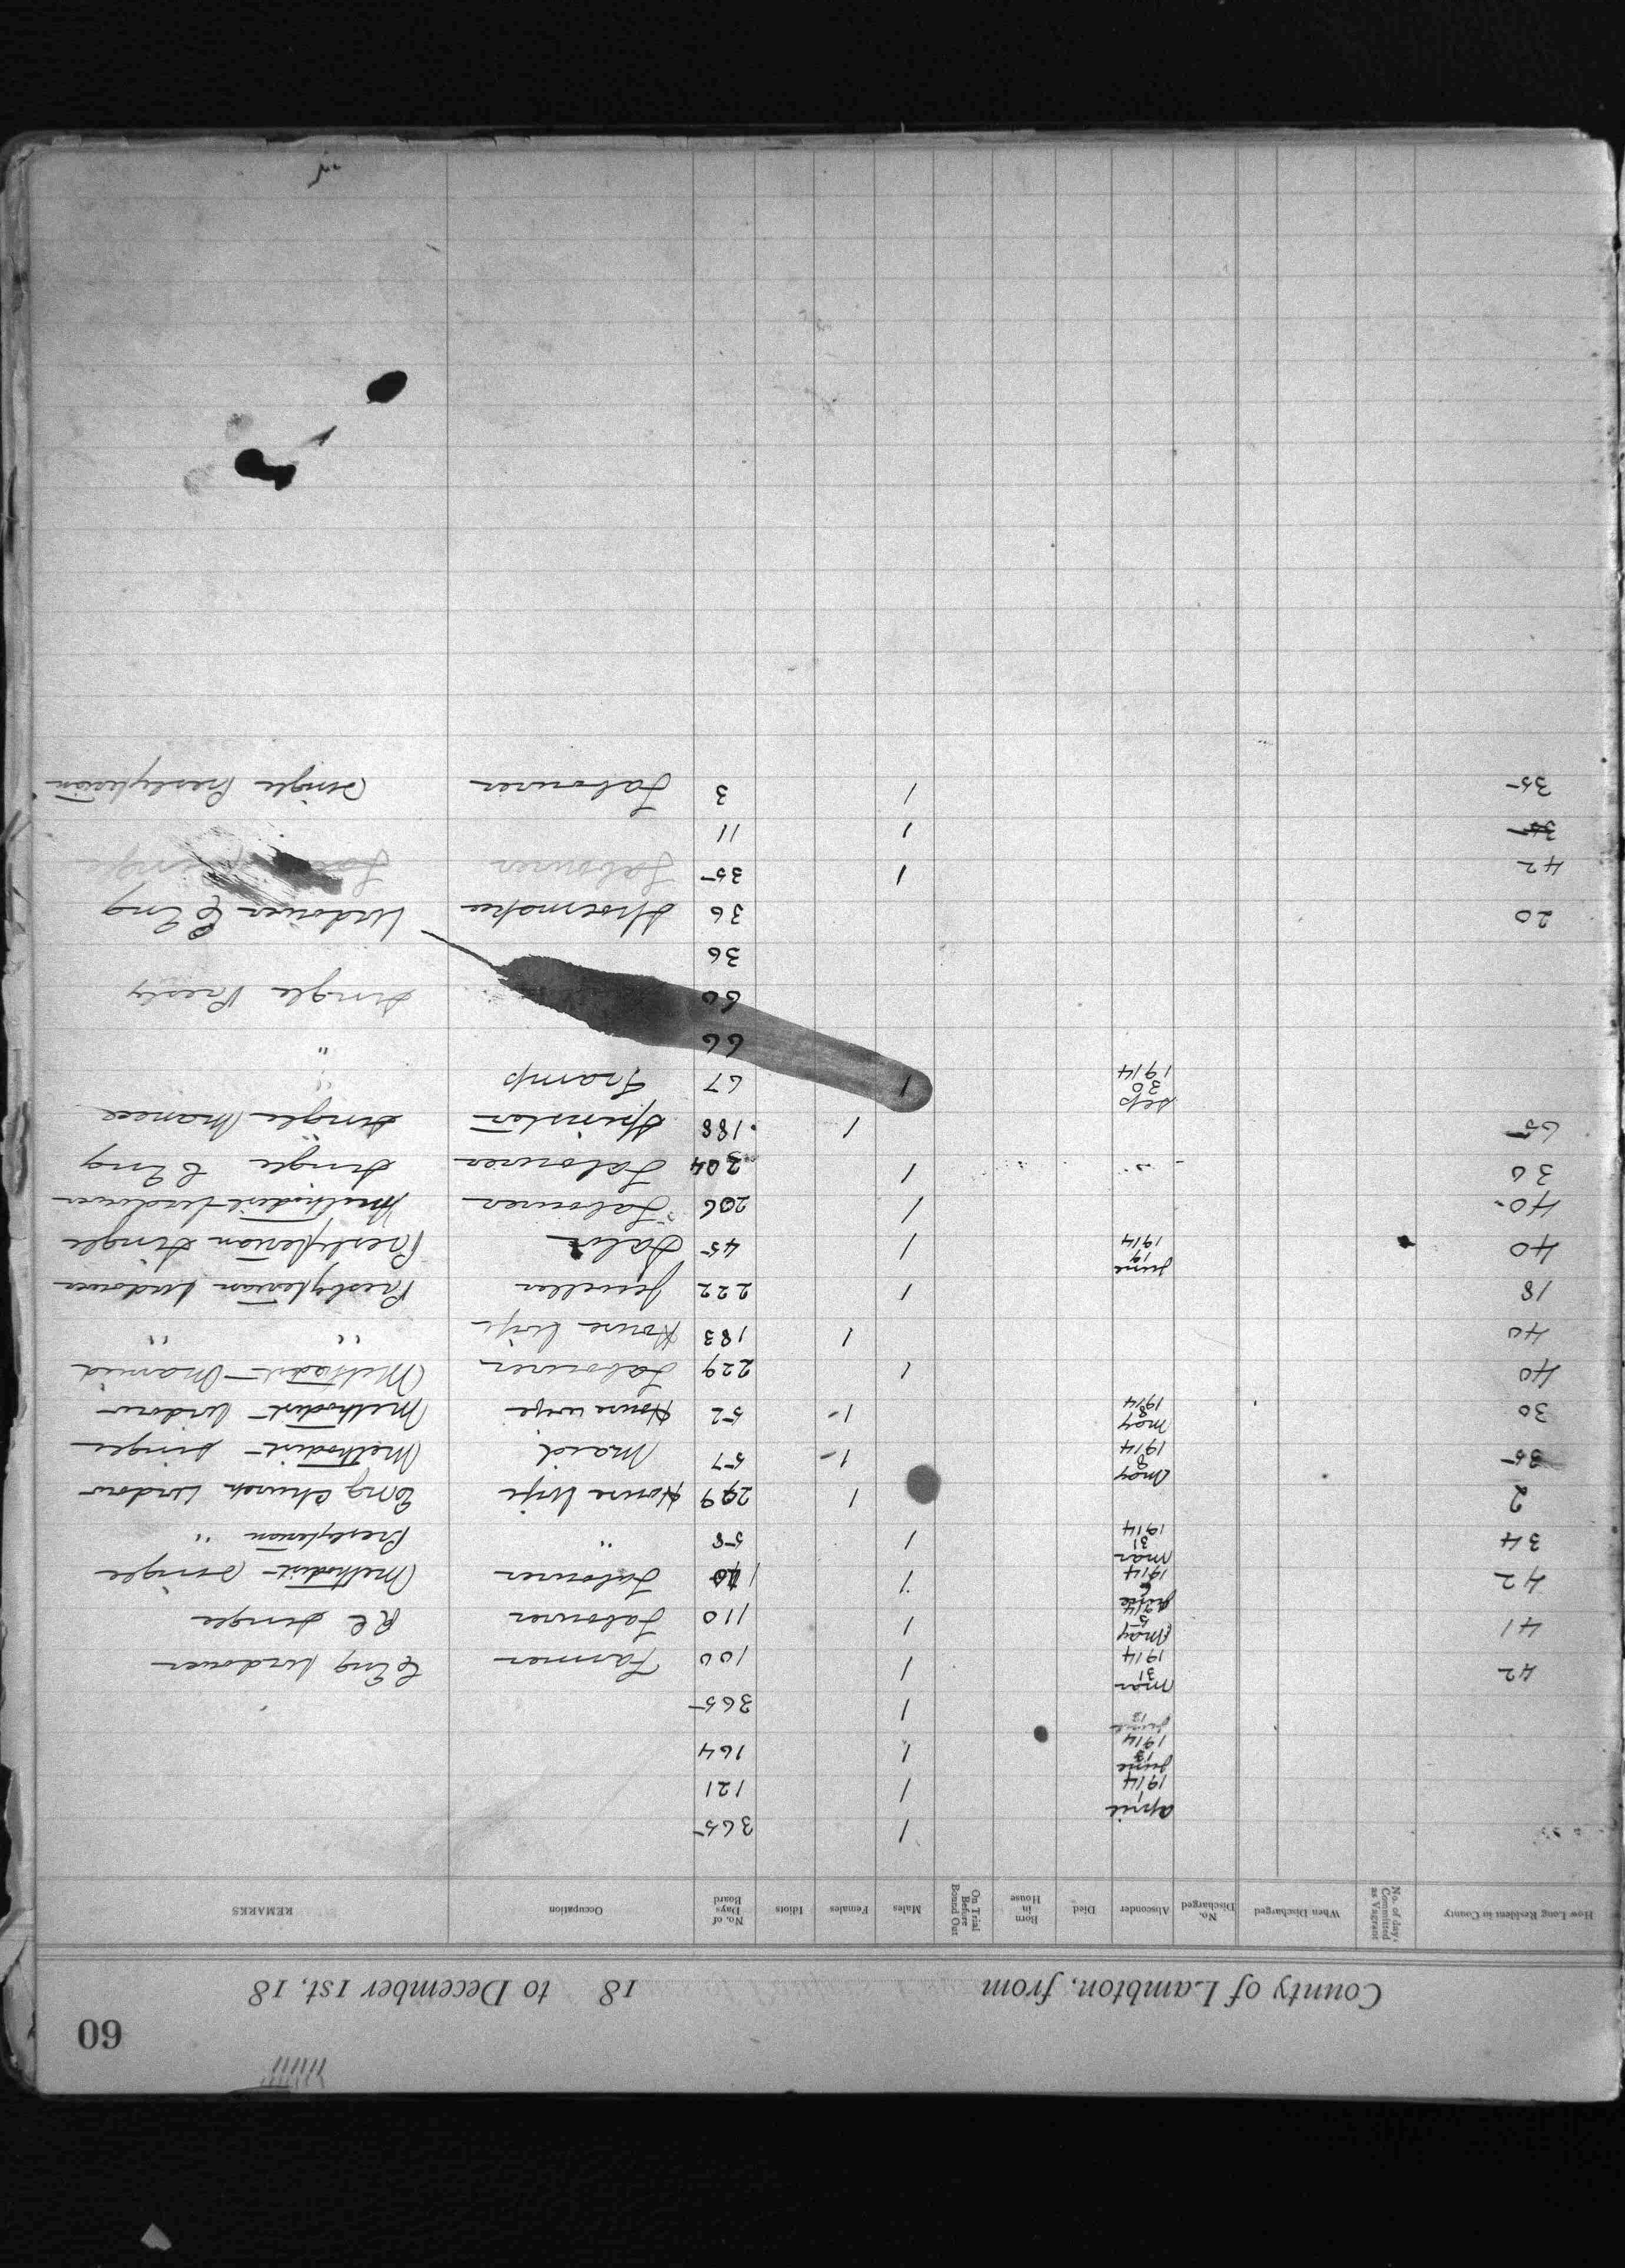 60
County of Lambton, from 18 to December 1st, 18
How Long Resident in County No. of days Committed as Vagrant When Discharged No. Discharged Absconder Died Born in House On Trial Before Bound Out Males Females Idiots No. of Days Board Occupation REMARKS
1 365
april 1 1914 1 121
June 13 1914 1 164
June 13 1 365
42 mar 31 1914 1 100 Farmer C Eng Widower
41 May 5 1914 1 110 Labourer R C Single
42 1914 1 Labourer Methodist Single
34 mar 31 1914 1 58 " Presbyterian "
2 1 299 House Wife Eng Church Widow
35 May 8 1914 1 57 Maid Methodist Single
30 may 8 1914 1 52 House wife Methodist Widow
40 1 229 Labourer Methodist Married
40 1 183 House Wife " "
18 1 222 Jeweller Presbyterian Widower
40 June 19 1914 1 45 Presbyterian Single
40 1 206 Labourer Methodist Widower
36 1 204 Labourer Single C Eng
65 1 188 Spinster Single
Sep 30 1914 1 67 Tramp "
66 "
60 Single Presby
36
20 36 Shoemaker Widower C Eng
42 1 35 Labourer
35 1 11
35 1 3 Labourer Single Presbyterian